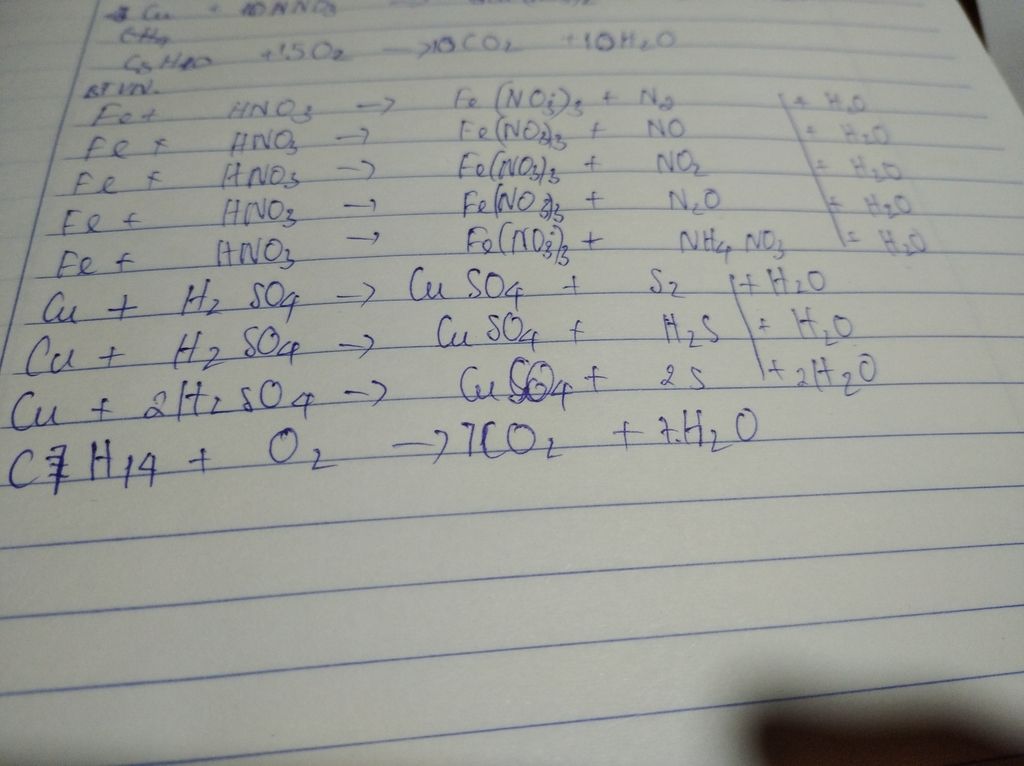 Cu + 10HNO3
C5H10 + 15O2 → 10CO2 + 10H2O
BTVN.
Fe + HNO3 → Fe(NO3)3 + N2 + H2O
Fe + HNO3 → Fe(NO3)3 + NO + H2O
Fe + HNO3 → Fe(NO3)3 + NO2 + H2O
Fe + HNO3 → Fe(NO3)3 + N2O + H2O
Fe + HNO3 → Fe(NO3)3 + NH4NO3 + H2O
Cu + H2SO4 → CuSO4 + S2 + H2O
Cu + H2SO4 → CuSO4 + H2S + H2O
Cu + 2H2SO4 → CuSO4 + 2S + 2H2O
C7H14 + O2 → 7CO2 + 7.H2O